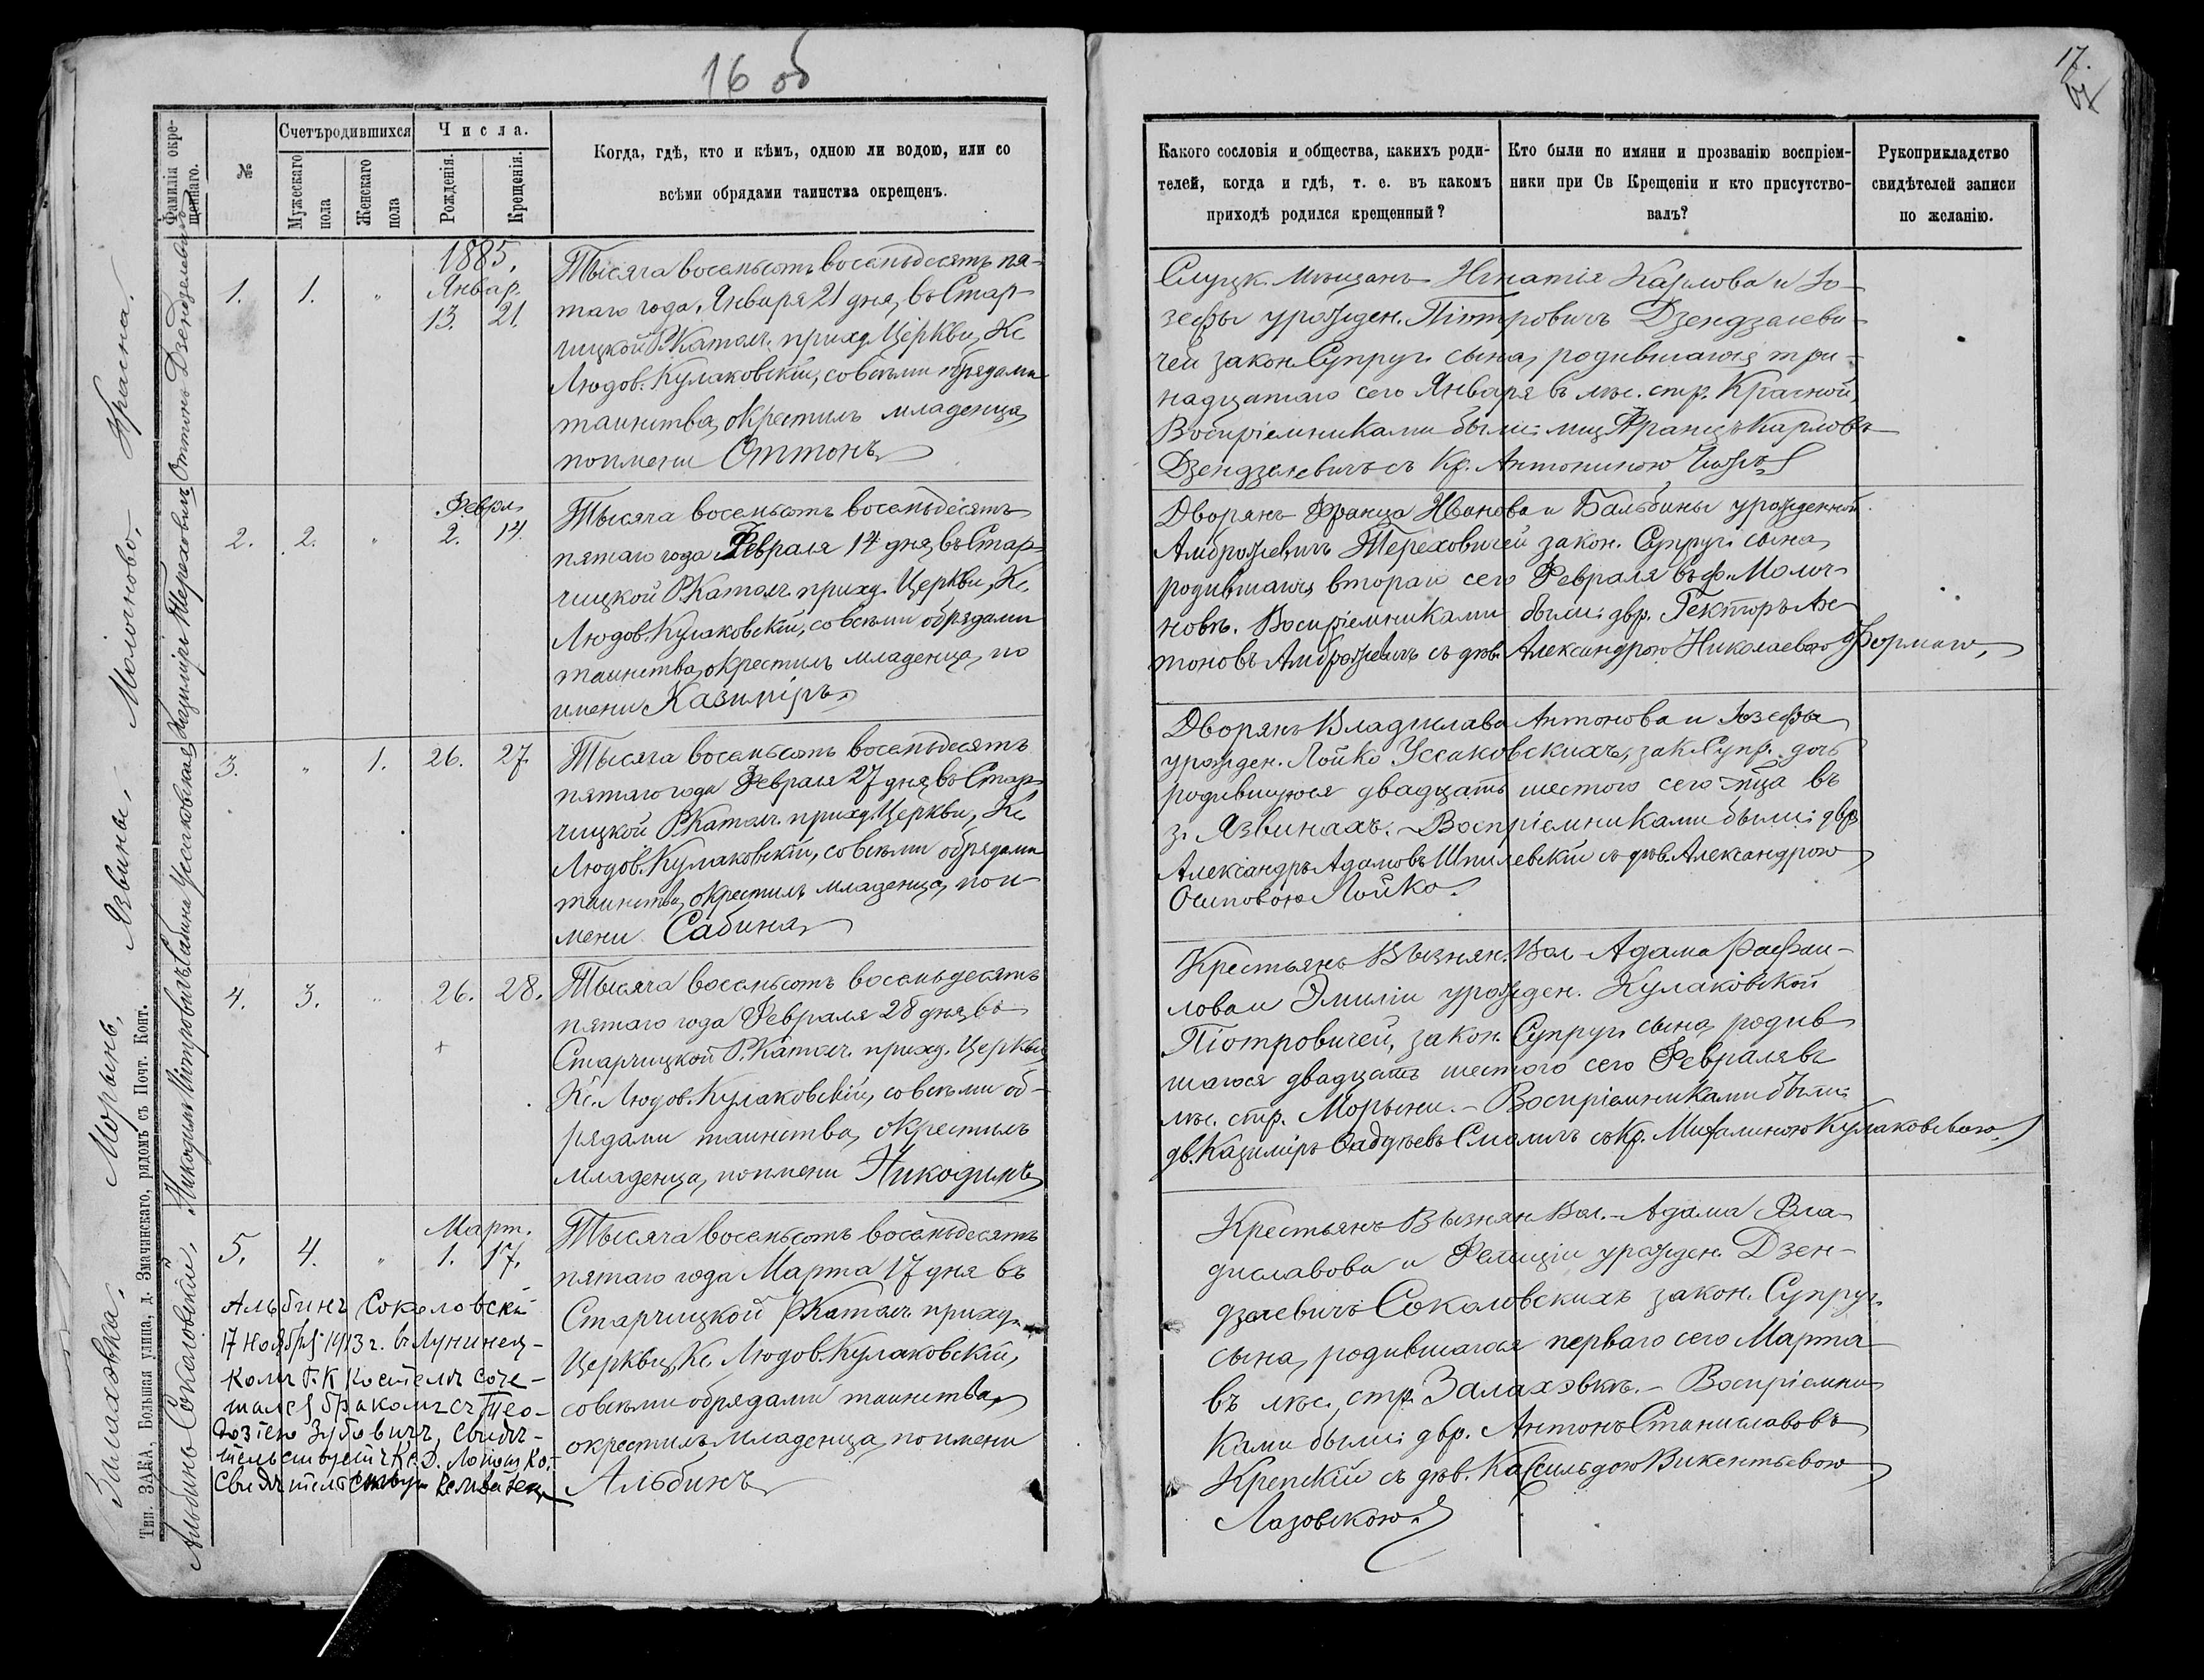 16 об
Фамилія окре-
щеннаго.
№
Счетъ родившихся
Мужескаго
пола
Женскаго
пола
Числа.
Рожденія.
Крещенія.
Когда, гдѣ, кто и кѣмъ, одною ли водою, или со
всѣми обрядами таинства окрещенъ.
Красна.
Оттонъ Дзендзелевичъ
1885.
Январ.
1. 1. " 13. 21.
Тысяча восемьсотъ восемьдесятъ пя-
таго года, Января 21 дня, въ Стар-
чицкой Р. Катол. приход. Церкви, Кс.
Людов. Кулаковскій, со всѣми обрядами
таинства, окрестилъ младенца,
по имени Оттонъ
Молочново.
Казиміръ Тереховичъ
Феврл.
2. 2. " 2. 14.
Тысяча восемьсотъ восемьдесятъ
пятаго года Февраля 14 дня, въ Стар-
чицкой Р. Катол. приход. Церкви, Кс.
Людов. Кулаковскій, со всѣми обрядами
таинства, окрестилъ младенца, по
имени Казиміръ
Язвины.
Сабина Уссаковская
3. " 1. 26. 27.
Тысяча восемьсотъ восемьдесятъ
пятаго года Февраля 27 дня, въ Стар-
чицкой Р. Катол. приход. Церкви, Кс.
Людов. Кулаковскій, со всѣми обрядами
таинства, окрестилъ младенца, по и-
мени Сабина
Морынь.
Никодимъ Піотровичъ
4. 3. " 26. 28.
Тысяча восемьсотъ восемьдесятъ
пятаго года Февраля 28 дня, въ
Старчицкой Р. Катол. приход. Церкви
Кс. Людов. Кулаковскій, со всѣми об-
рядами таинства, окрестилъ
младенца, по имени Никодимъ
Залахэвка.
Альбинъ Соколовскій.
Март.
5. 4. " 1. 17.
Тысяча восемьсотъ восемьдесятъ
пятаго года Марта 17 дня въ
Старчицкой Р Катол. приход.
Церкви, Кс. Людов. Кулаковскій,
со всѣми обрядами таинства,
окрестилъ младенца, по имени
Альбинъ
Альбинъ Соколовскій
17 ноября 1913 г. въ Лунинец-
комъ Р. К Костелѣ соче-
тался бракомъ съ Тео-
Зубовичъ, свидѣ-
тельствуетъ Кс.
Тип. ЗАКА, Большая улица, д. Змачинскаго, рядомъ съ Почт. Конт.
17.
Какого сословія и общества, какихъ роди-
телей, когда и гдѣ, т. е. въ какомъ
приходѣ родился крещенный?
Кто были по имяни и прозванію воспріем-
ники при Св Крещеніи и кто присутство-
валъ?
Рукоприкладство
свидѣтелей записи
по желанію.
Слуцк. мѣщанъ Игнатія Карлова и Іо-
зефы урожден. Піотровичъ Дзендзелеви-
чей закон. Супруг. сына, родившагося три-
надцатаго сего Января въ мѣс. стр. Красной,
Воспріемниками были: мщ. Францъ Карловъ
Дзендзелевичъ съ Кр. Антониною
Дворянъ Франца Иванова и Бальбины урожденной
Амброжевичъ Тереховичей закон. Супруг. сына,
родившагося втораго сего Февраля въ ф. Молоч-
новѣ. Воспріемниками были: двр. Гекторъ Ан-
тоновъ Амброжевичъ съ дѣв. Александрою Николаевою Ферман,
Дворянъ Владислава Антонова и Іозефы
урожден. Лойко Уссаковскихъ, зак. Супр. дочь
родившуюся двадцать шестого сего мца въ
з. Язвинахъ. Воспріемниками были: двр.
Александръ Адамовъ Шпилевскій съ дѣв. Александрою
Осиповою Лойко.
Крестьянъ Вызнян. Вол. Адама Рафаи-
лова и Эмиліи урожден. Кулаковской
Піотровичей, закон. Супруг. сына, родив
шагося двадцать шестого сего Февраля въ
мѣс. стр. Морыни. - Воспріемниками были:
дв. Казиміръ Смоличъ съ Кр. Михалиною Кулаковскою.
Крестьянъ Вызнян Вол. - Адама Вла-
диславова и Фелиціи урожден. Дзен-
дзелевичъ Соколовскихъ закон. Супруг.
сына, родившагося перваго сего Марта
въ мѣс. стр. Залахэвкѣ. - Воспріемни-
ками были: двр. Антонъ Станиславовъ
Крепскій съ дѣв. Касильдою Викентьевою
Лазовскою.